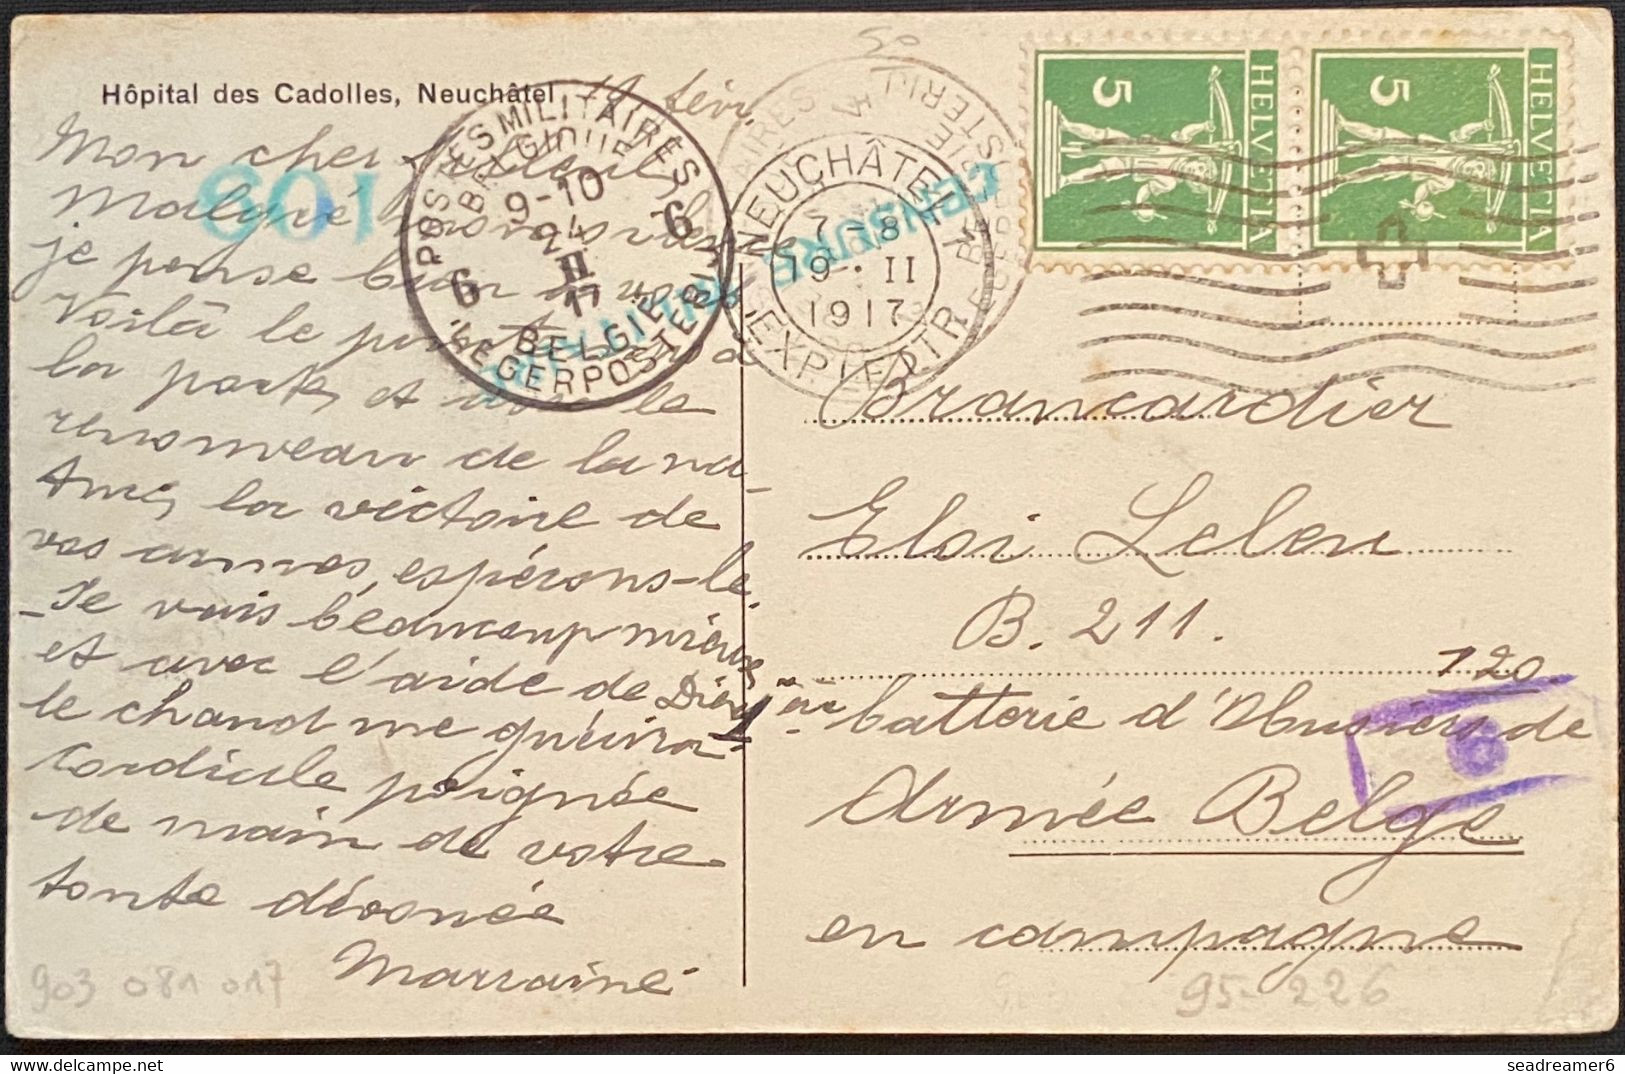 Hôpital des Cadolles, Neuchâtel
févr.
Mon cher filleul,
Malgré mon silence
je pense bien à vous
Voilà le printemps à
la porte, et avec le
renouveau de la na-
ture, la victoire de
vos armes, espérons-le
- Je vais beaucoup mieux
et avec l'aide de Dieu
le chaud me guérira
Cordiale poignée
de main de votre
toute dévouée
Marraine
903 081 017
601
POSTES MILITAIRES
BELGIQUE
9-10
24
II
17
6 6
BELGIË
LEGERPOSTERIJ
CENSURE MILITAIRE
NEUCHÂTEL
7-8
19·II
1917
EXP. LETTR.
HELVETIA 5
HELVETIA 5
Brancardier
Eloi Leleu
B. 211.
120
batterie d'Obusiers de
Armée Belge
en campagne
95-226
https://www.delcampe.net | seadreamer6